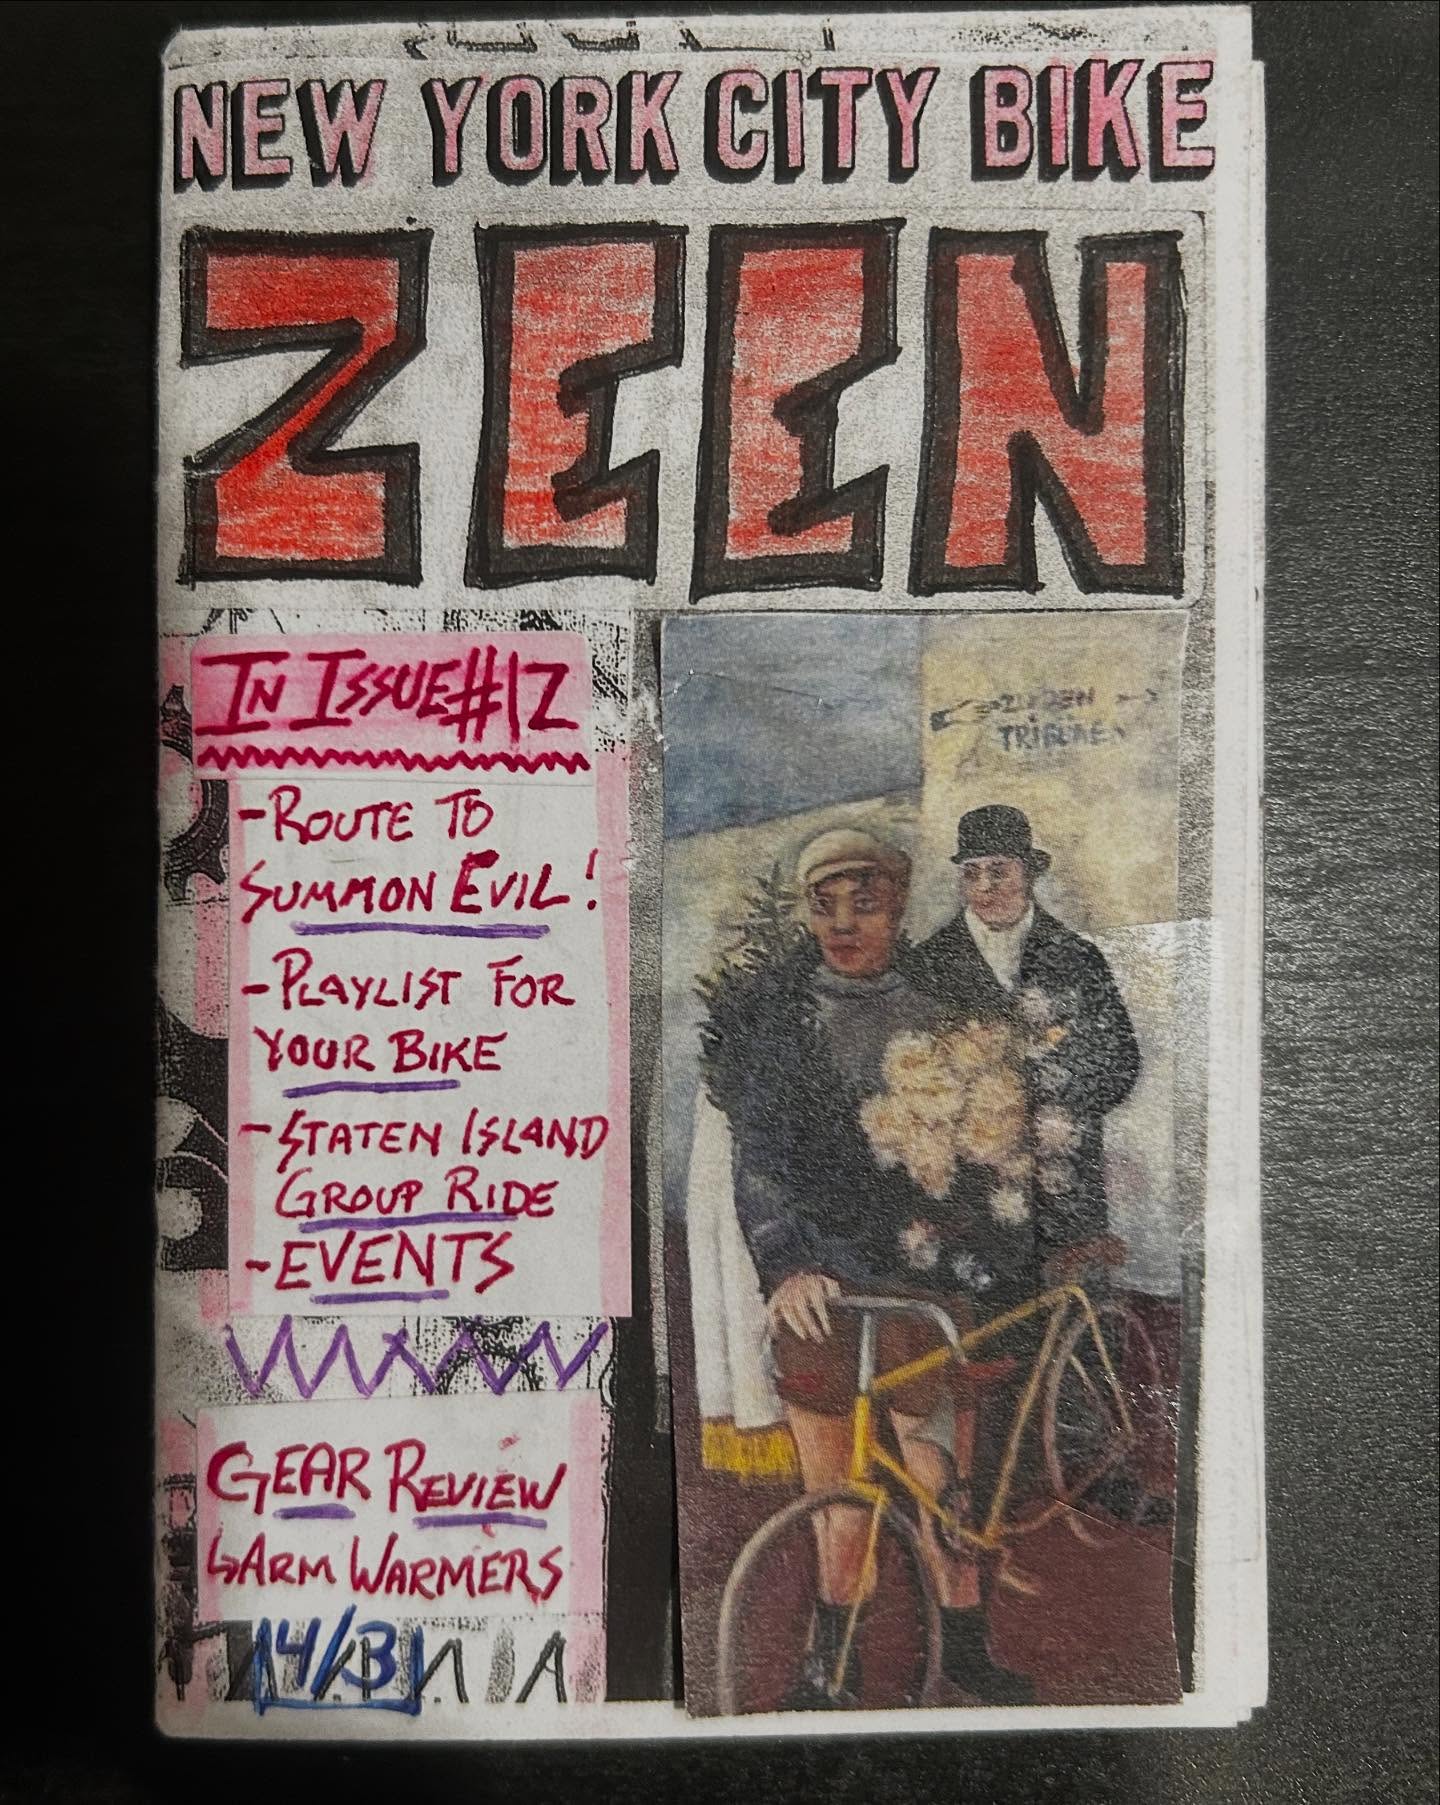 NEW YORK CITY BIKE
ZEEN
IN ISSUE #12
-ROUTE TO
SUMMON EVIL!
-PLAYLIST FOR
YOUR BIKE
-STATEN ISLAND
GROUP RIDE
-EVENTS
GEAR REVIEW
↳ARM WARMERS
TRIBÜNE